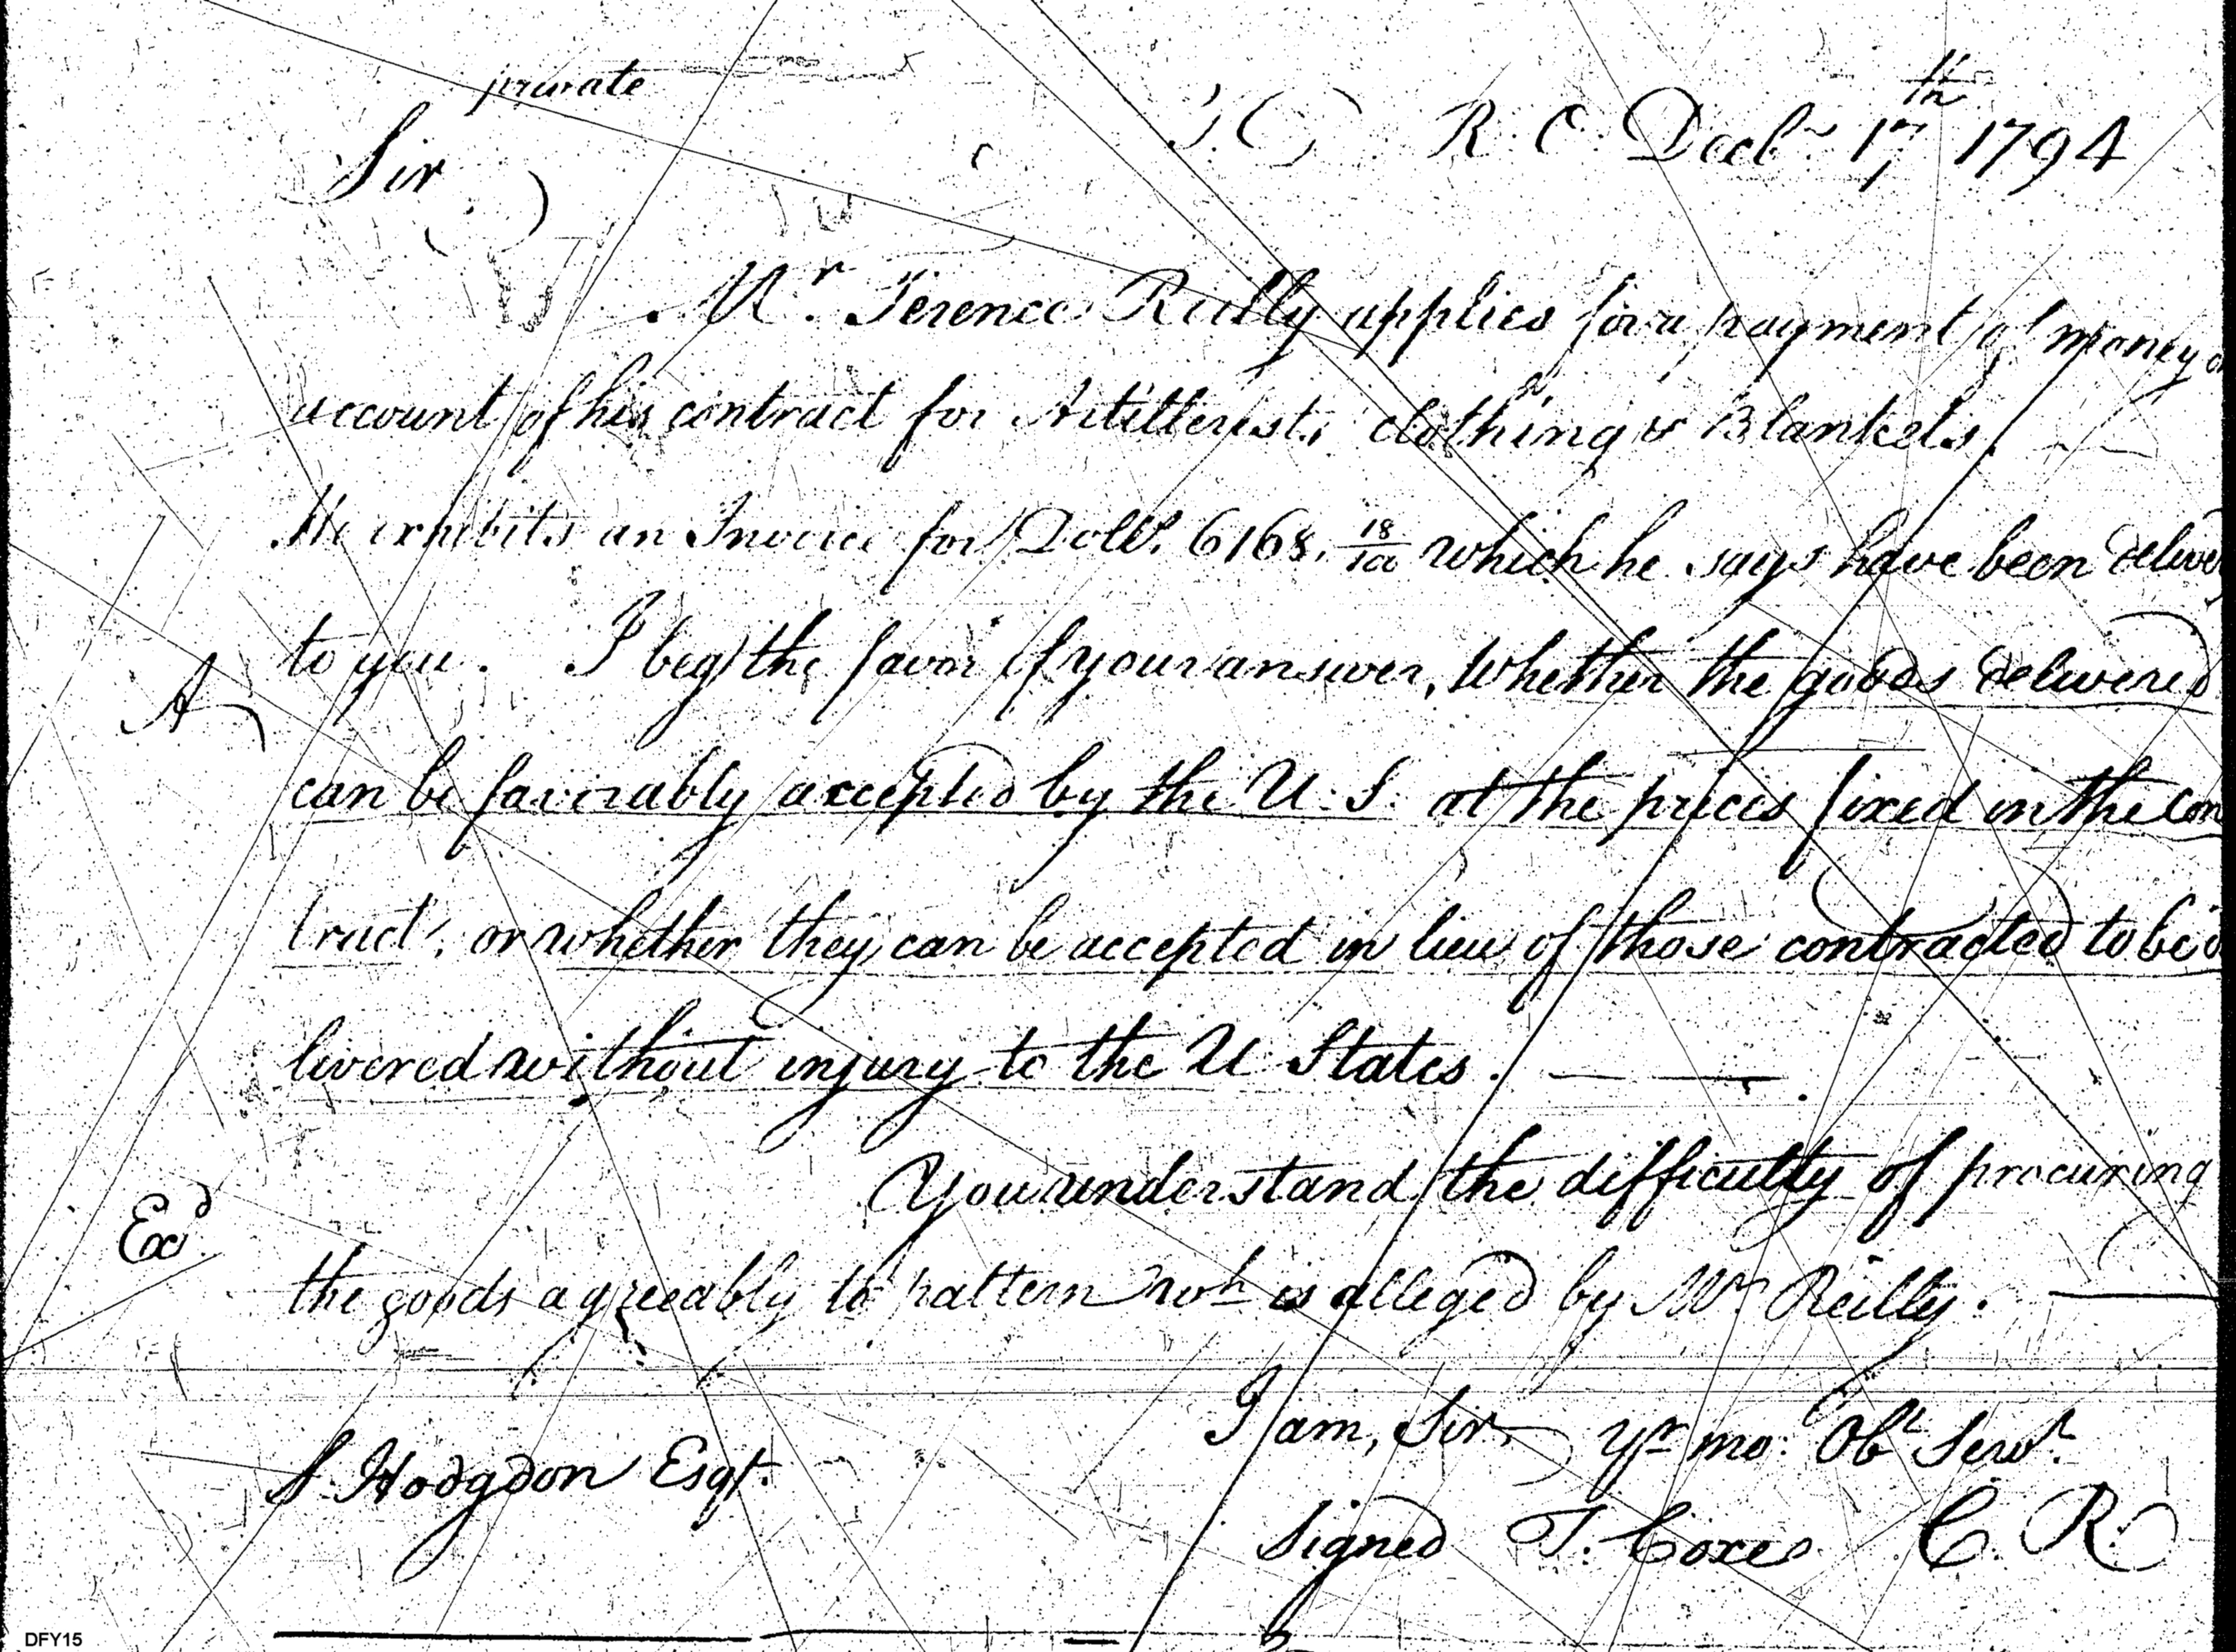 private
Sir T. D. R. O. Decbr. 17th 1794
Mr. Terence Reilly applies for a payment of money
account of his contract for Artillerists clothing & Blankets
He exhibits an Invoice for Dolls. 6168. 18/100 which he says have been deliver
to you. I beg the favor of your answer, whether the goods delivered
A
can be favorably accepted by the U: S: at the prices fixed in the con
tract, or whether they can be accepted in lieu of those contracted to be d
livered without injury to the U States.
You understand the difficulty of procuring
Exd
the goods agreeably to pattern wh is alleged by Mr Reilly.
I am, Sir, yr mo: Obt Servt.
S. Hodgdon Esqr.
Signed T. Coxe C. R.
DFY15